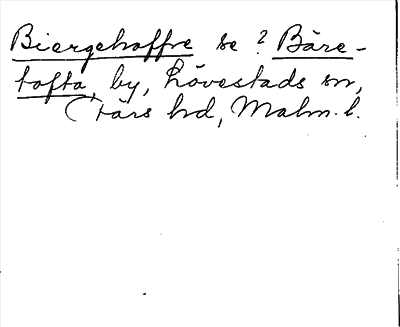 Biergehoffre se ? Bäre-
tofta, by, Lövestads sn,
(Färs hd, Malm. l.